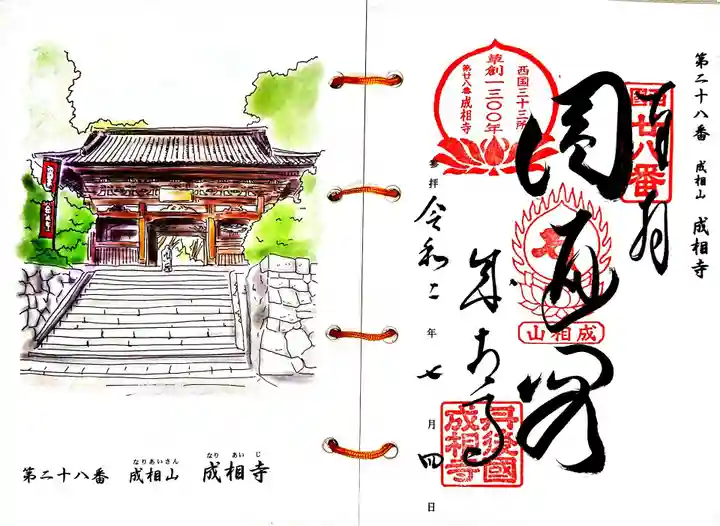 第二十八番 成相山 成相寺
なりあいさん なりあいじ
第二十八番 成相山 成相寺
奉拝
西国廿八番
圓通閣
成相寺
西国三十三所
草創一三〇〇年
第廿八番 成相寺
成相山
丹後國
成相寺
参拝 令和二年 七月 四日